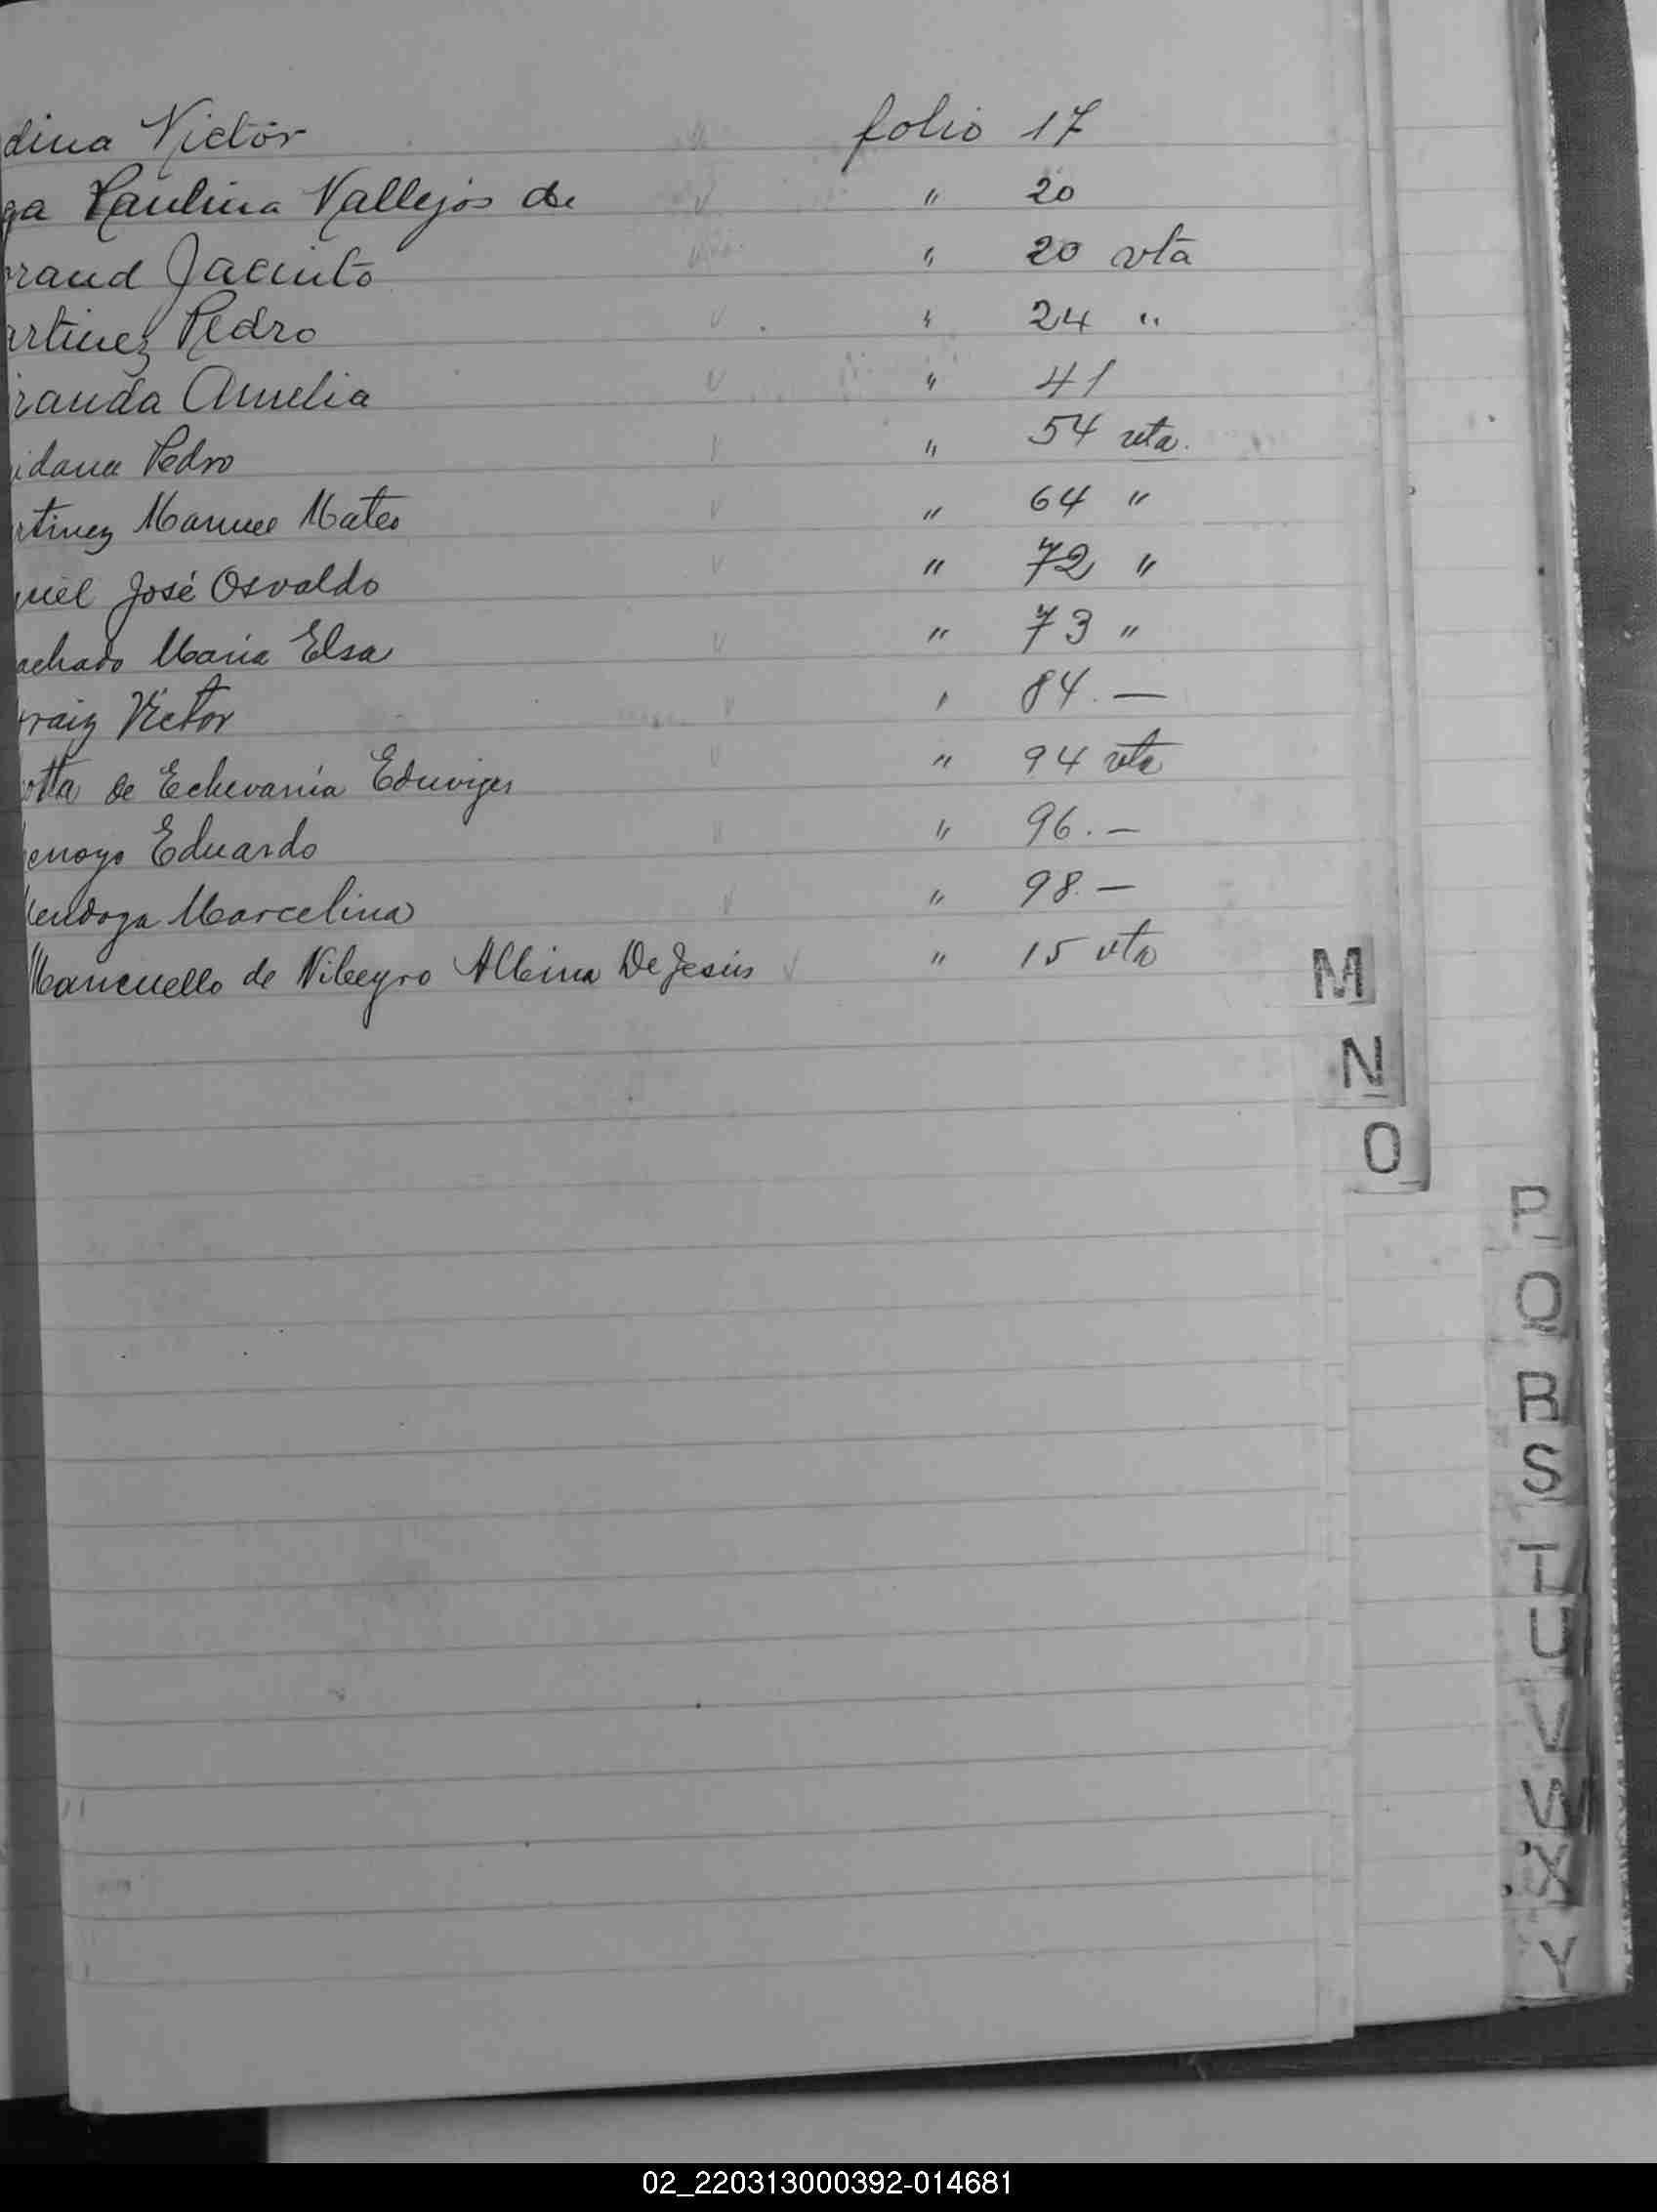 dina Victor folio 17
ga Paulina Vallejos de " 20
orand Jacinto " 20 vta
artinez Pedro " 24 "
iranda Amelia " 41
idana Pedro " 54 vta.
rtinez Manuel Mateo " 64 "
uiel José Osvaldo " 72 "
achado Maria Elsa " 73 "
rraiz Victor " 84. —
otta de Echevarría Eduviges " 94 vta
enoyo Eduardo " 96. —
Mendoza Marcelina " 98. —
Mancuello de Nibeyro Albina De Jesús " 15 vta
M
N
O
P
Q
R
S
T
U
V
W
X
Y
02_220313000392-014681